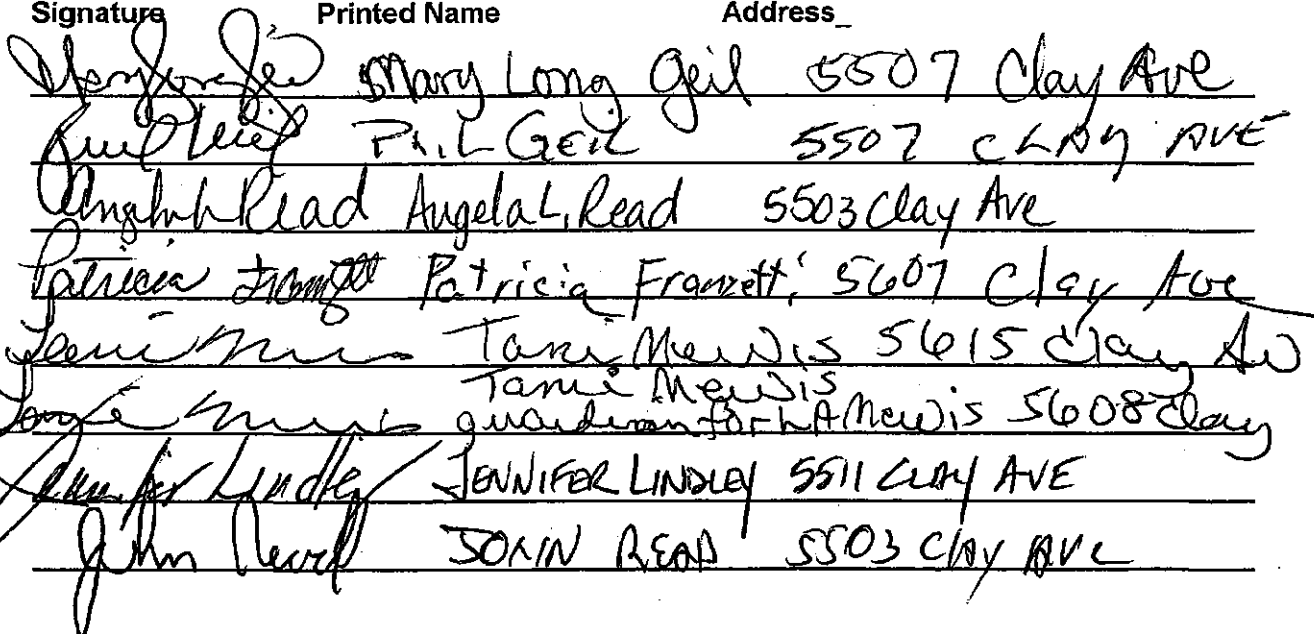 Signature Printed Name Address_
Mary Long Geil Mary Long Geil 5507 Clay Ave
Phil Geil PhiL GEIL 5507 CLAY AVE
Angela L Read Angela L. Read 5503 Clay Ave
Patricia Franzetti Patricia Franzetti 5607 Clay Ave
Tami Mewis Tami Mewis 5615 Clay Av
Tami Mewis
Mewis guardian for LA Mewis 5608 Clay
Jennifer Lindley JENNIFER LINDLEY 5511 CLAY AVE
John Read JOHN READ 5503 CLAY AVE